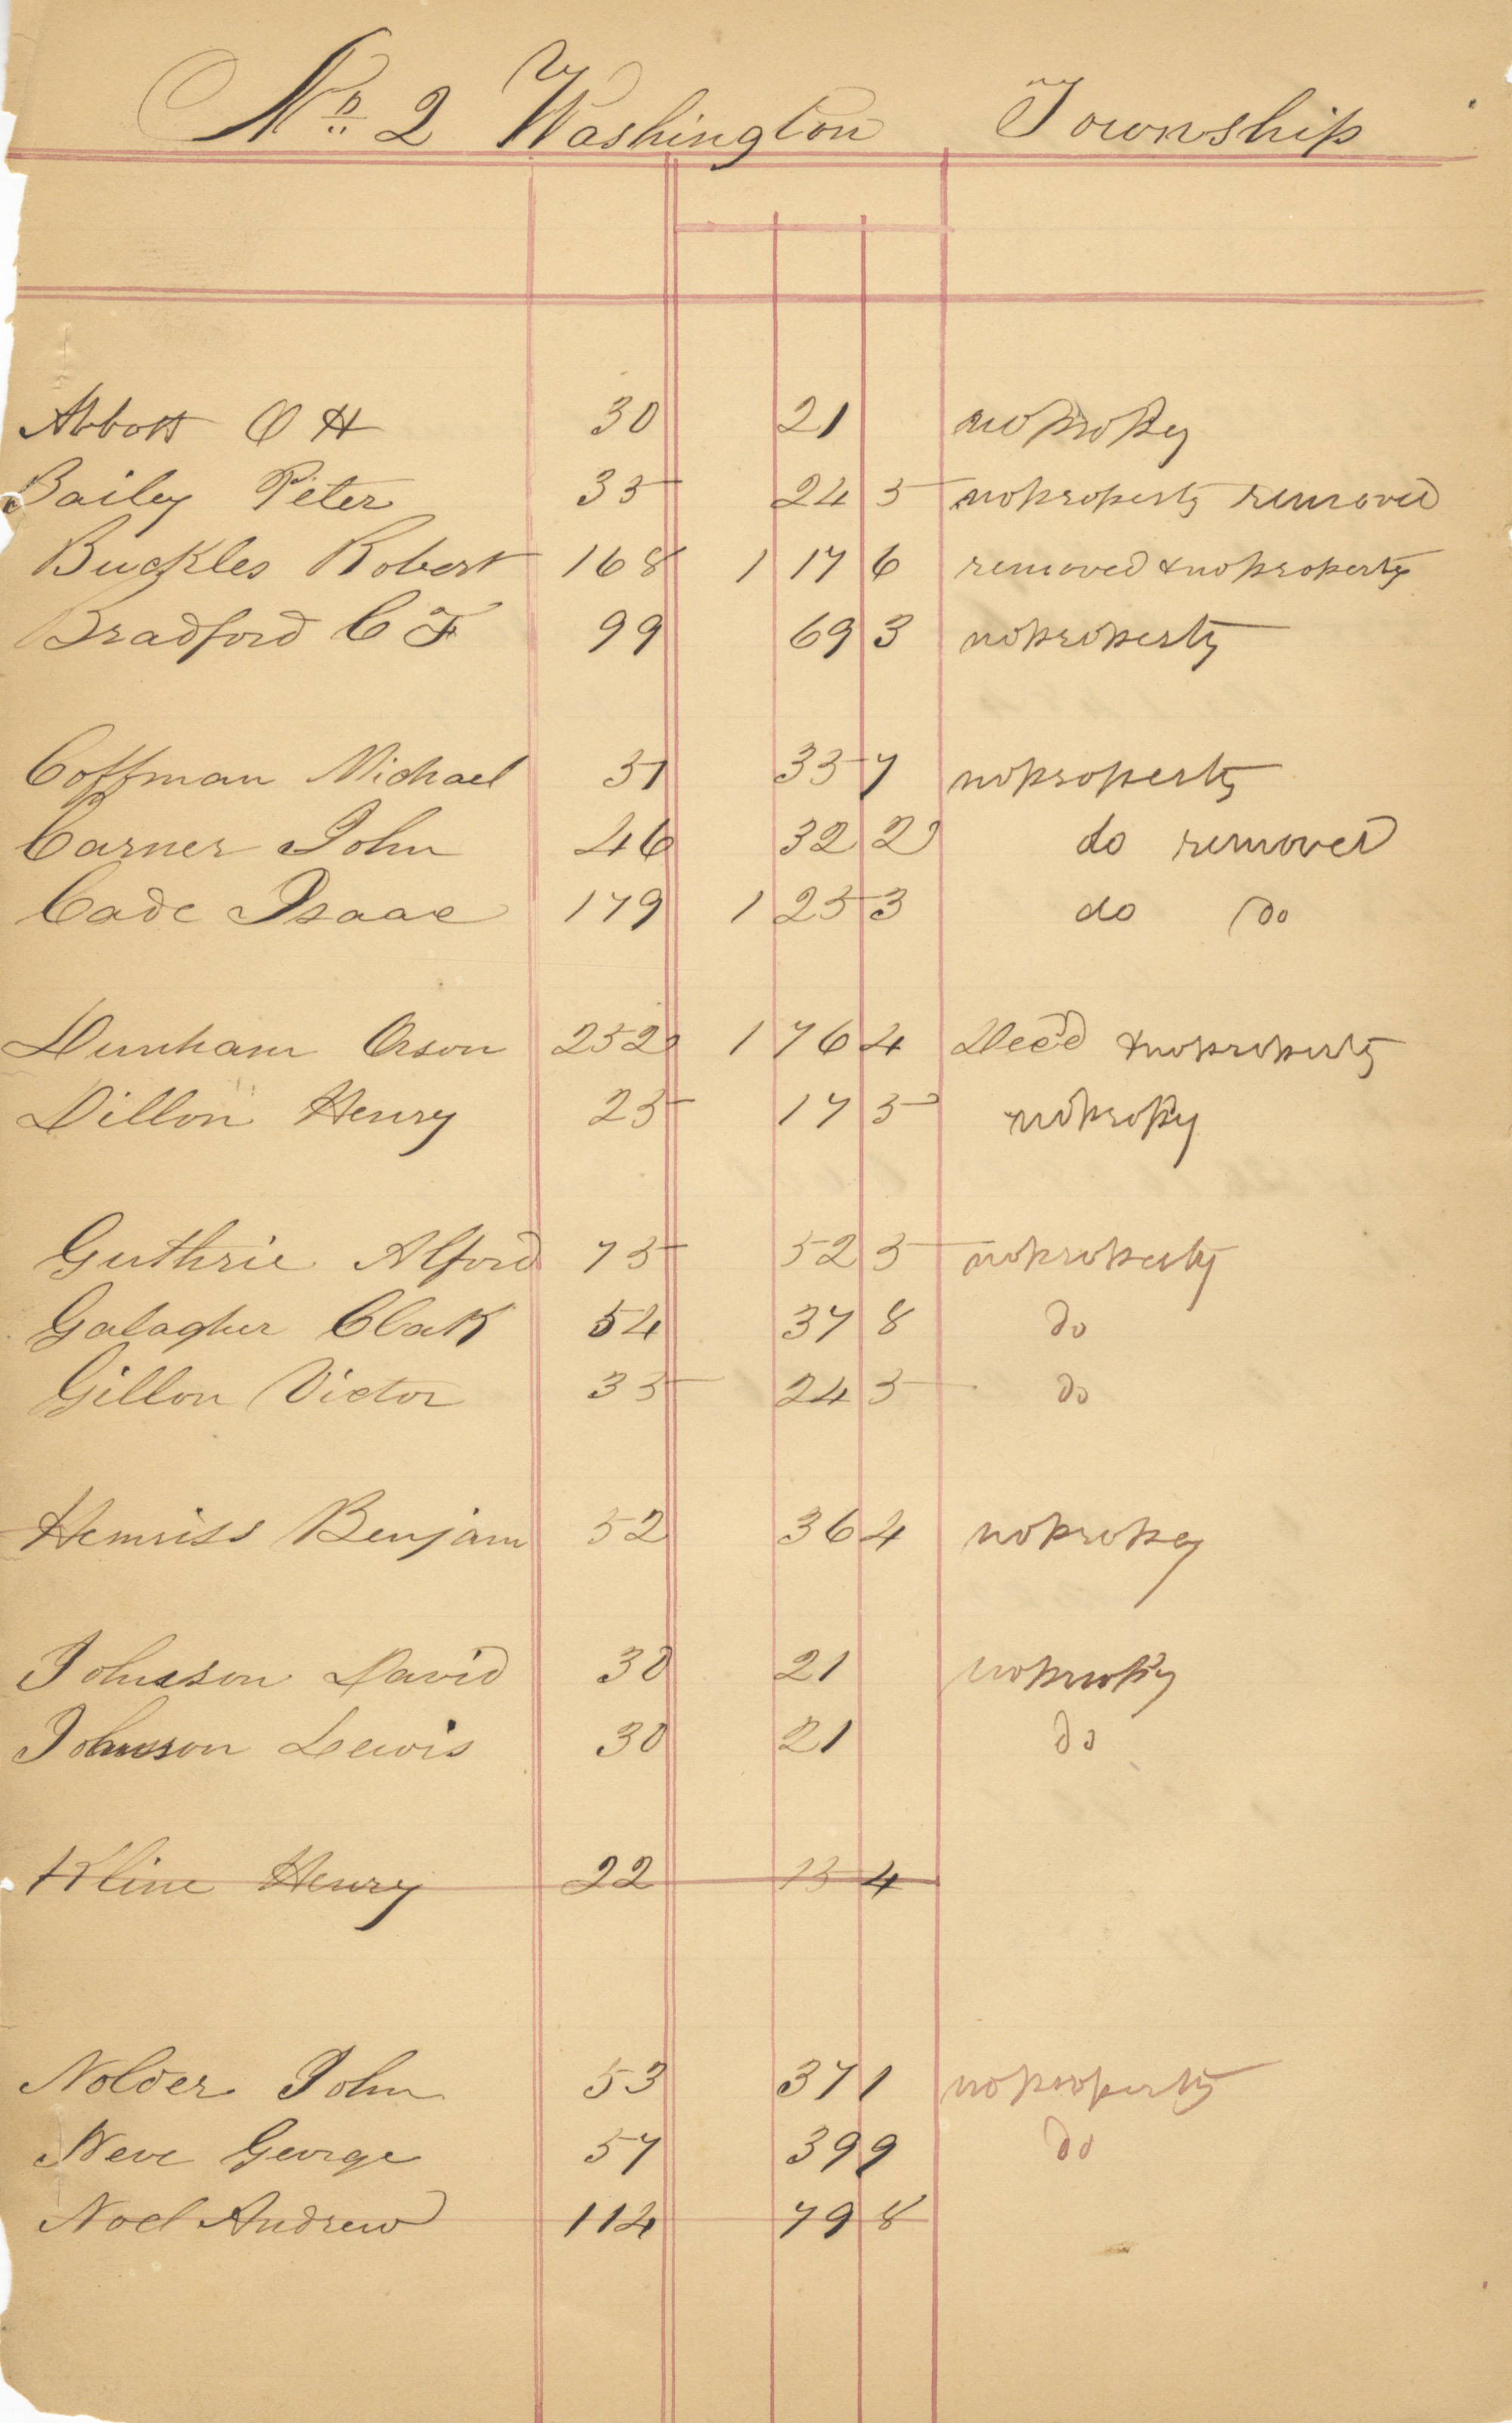 No 2 Washington Township
Abbott O H 30 21 no propty
Bailey Peter 35 24 5 no property removed
Buckles Robert 168 1 17 6 removed & no property
Bradford C F 99 69 3 no property
Coffman Michael 51 35 7 no property
Carner John 46 32 2 do removed
Cade Isaac 179 1 25 3 do do
Dunham Orson 252 1 76 4 Decd & no property
Dillon Henry 25 17 5 no propty
Guthrie Alford 75 52 5 no property
Galagher Clark 54 37 8 do
Gillon Victor 35 24 5 do
Benjam 52 36 4 no propty
Johnson David 30 21 no propty
Johnson Lewis 30 21 do
Kline Henry 22 15 4
Nolder John 53 37 1 no property
Neve George 57 39 9 do
Noel Andrew 114 79 8